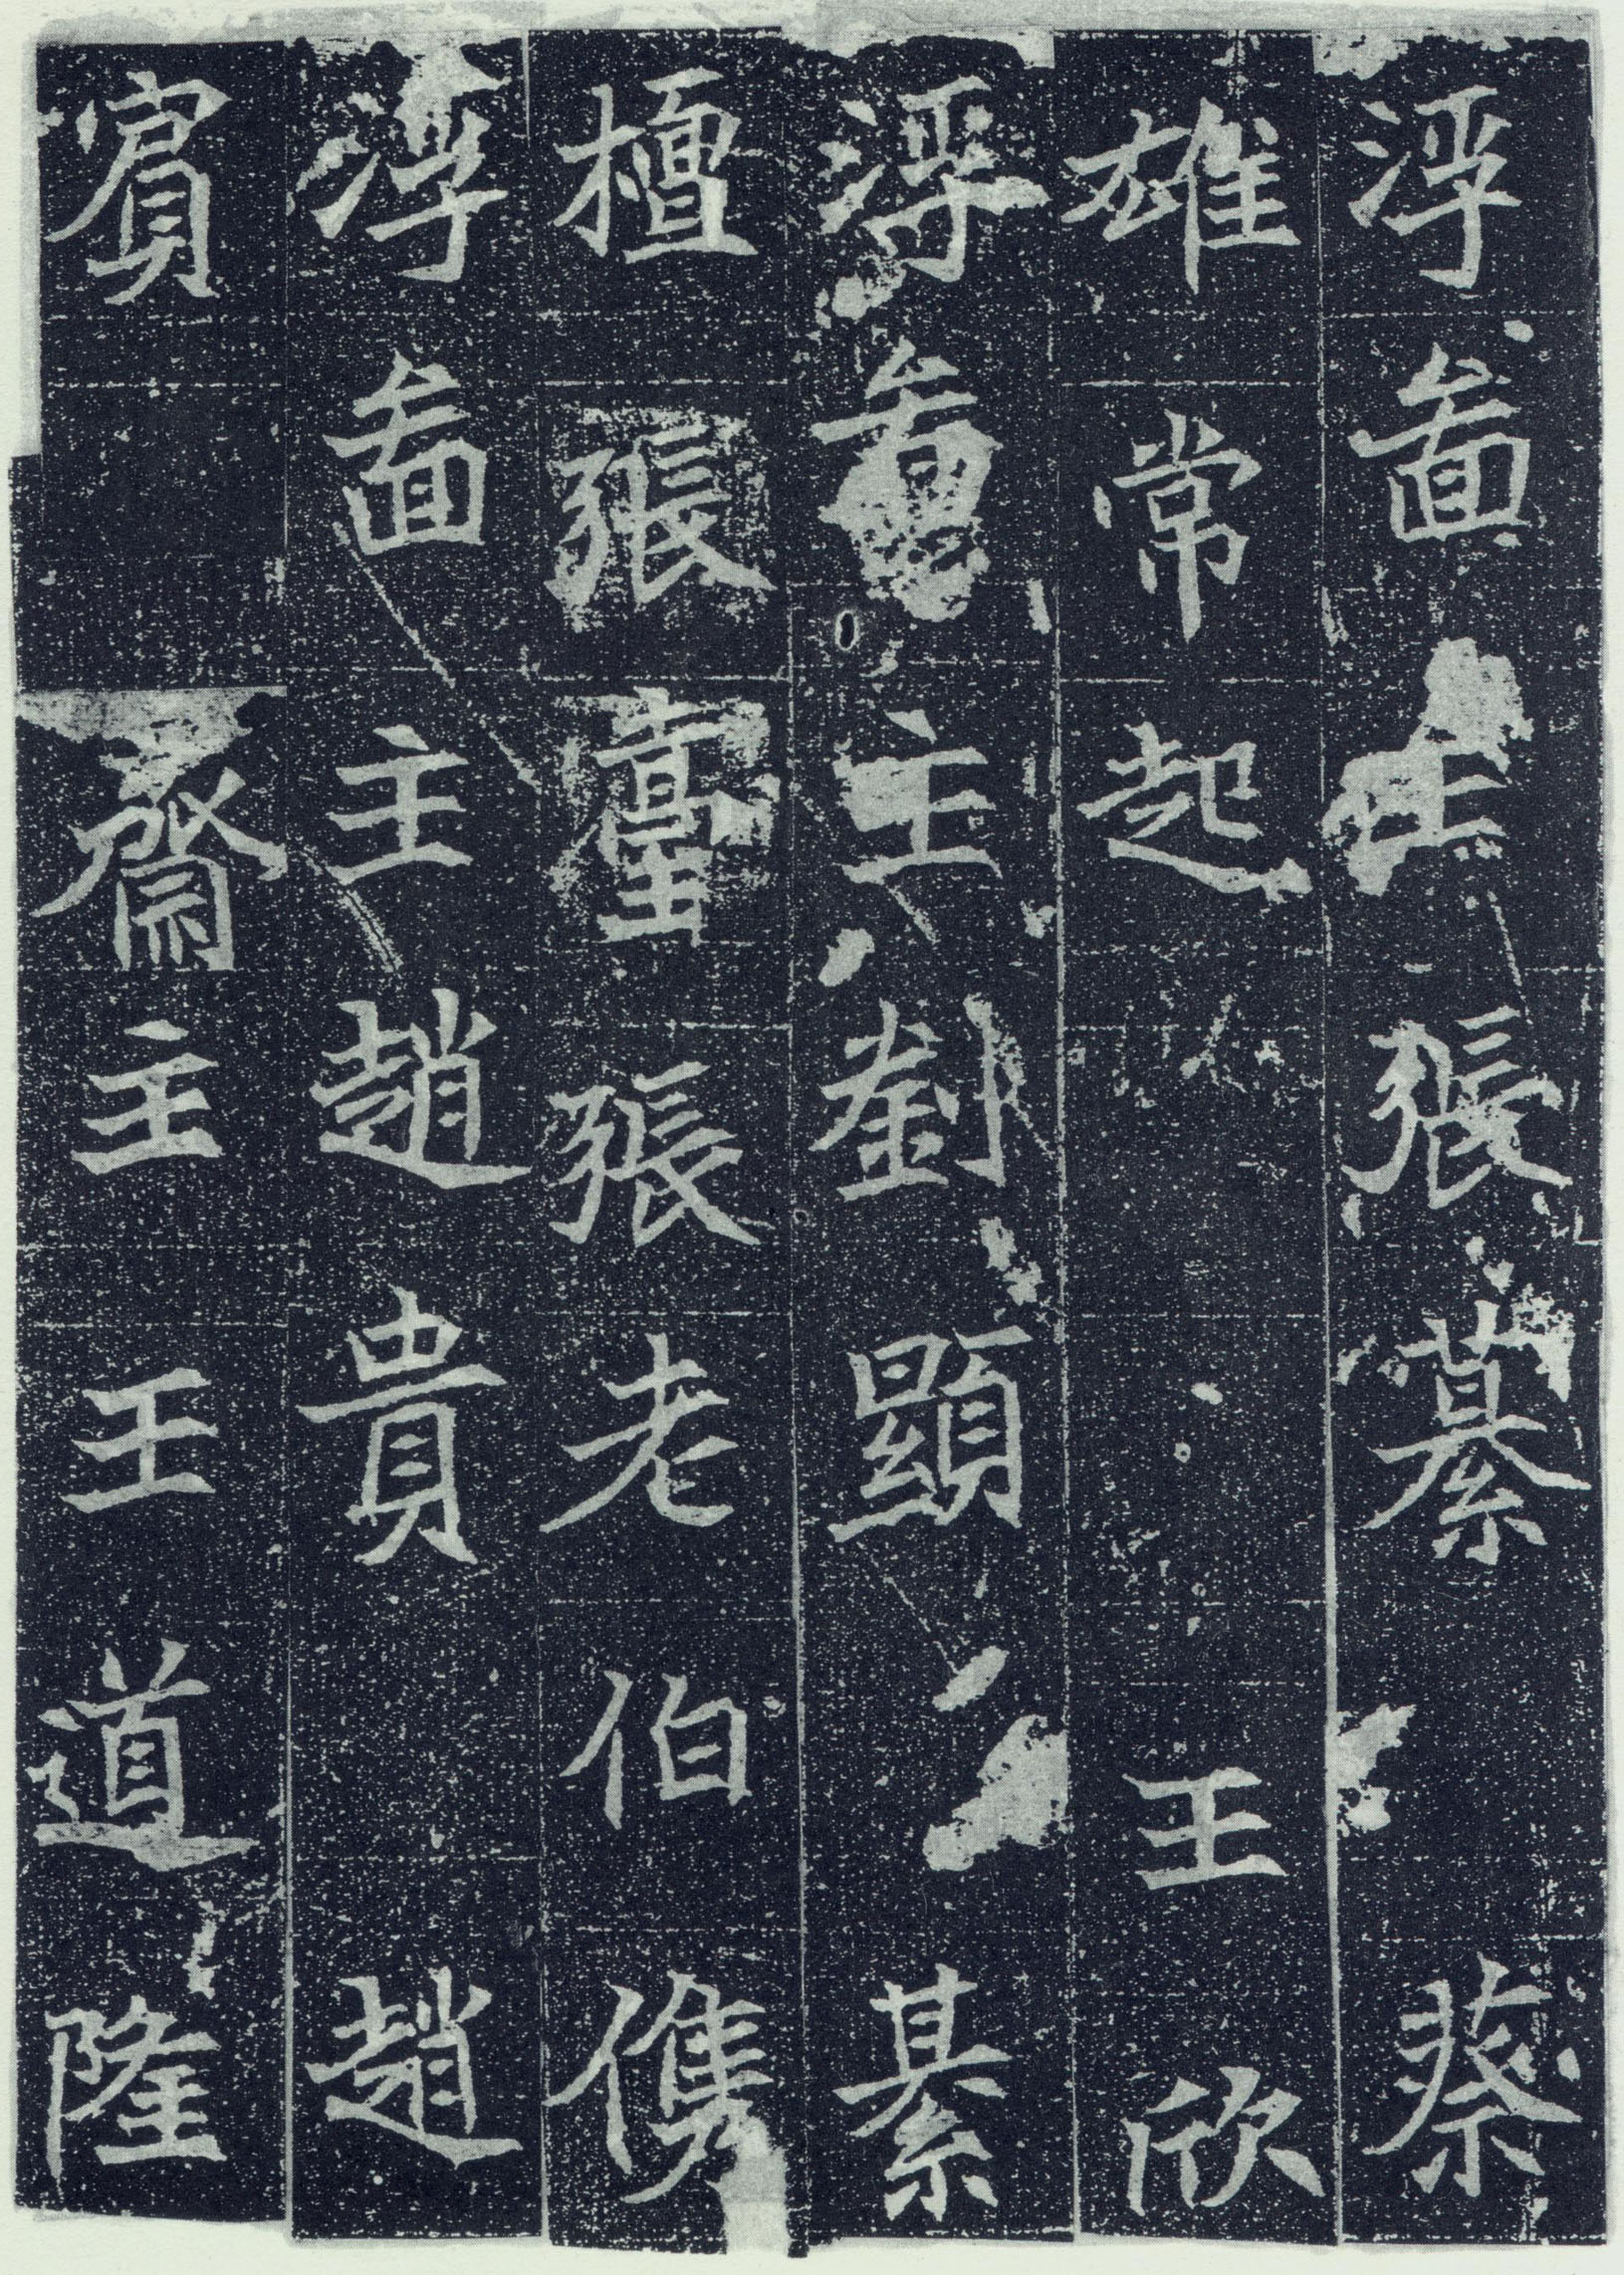 浮啚主張綦蔡
雄常起王欣
浮啚主劉顯綦
檀張臺張老伯儁
浮啚主趙貴趙
賓齋主王道隆